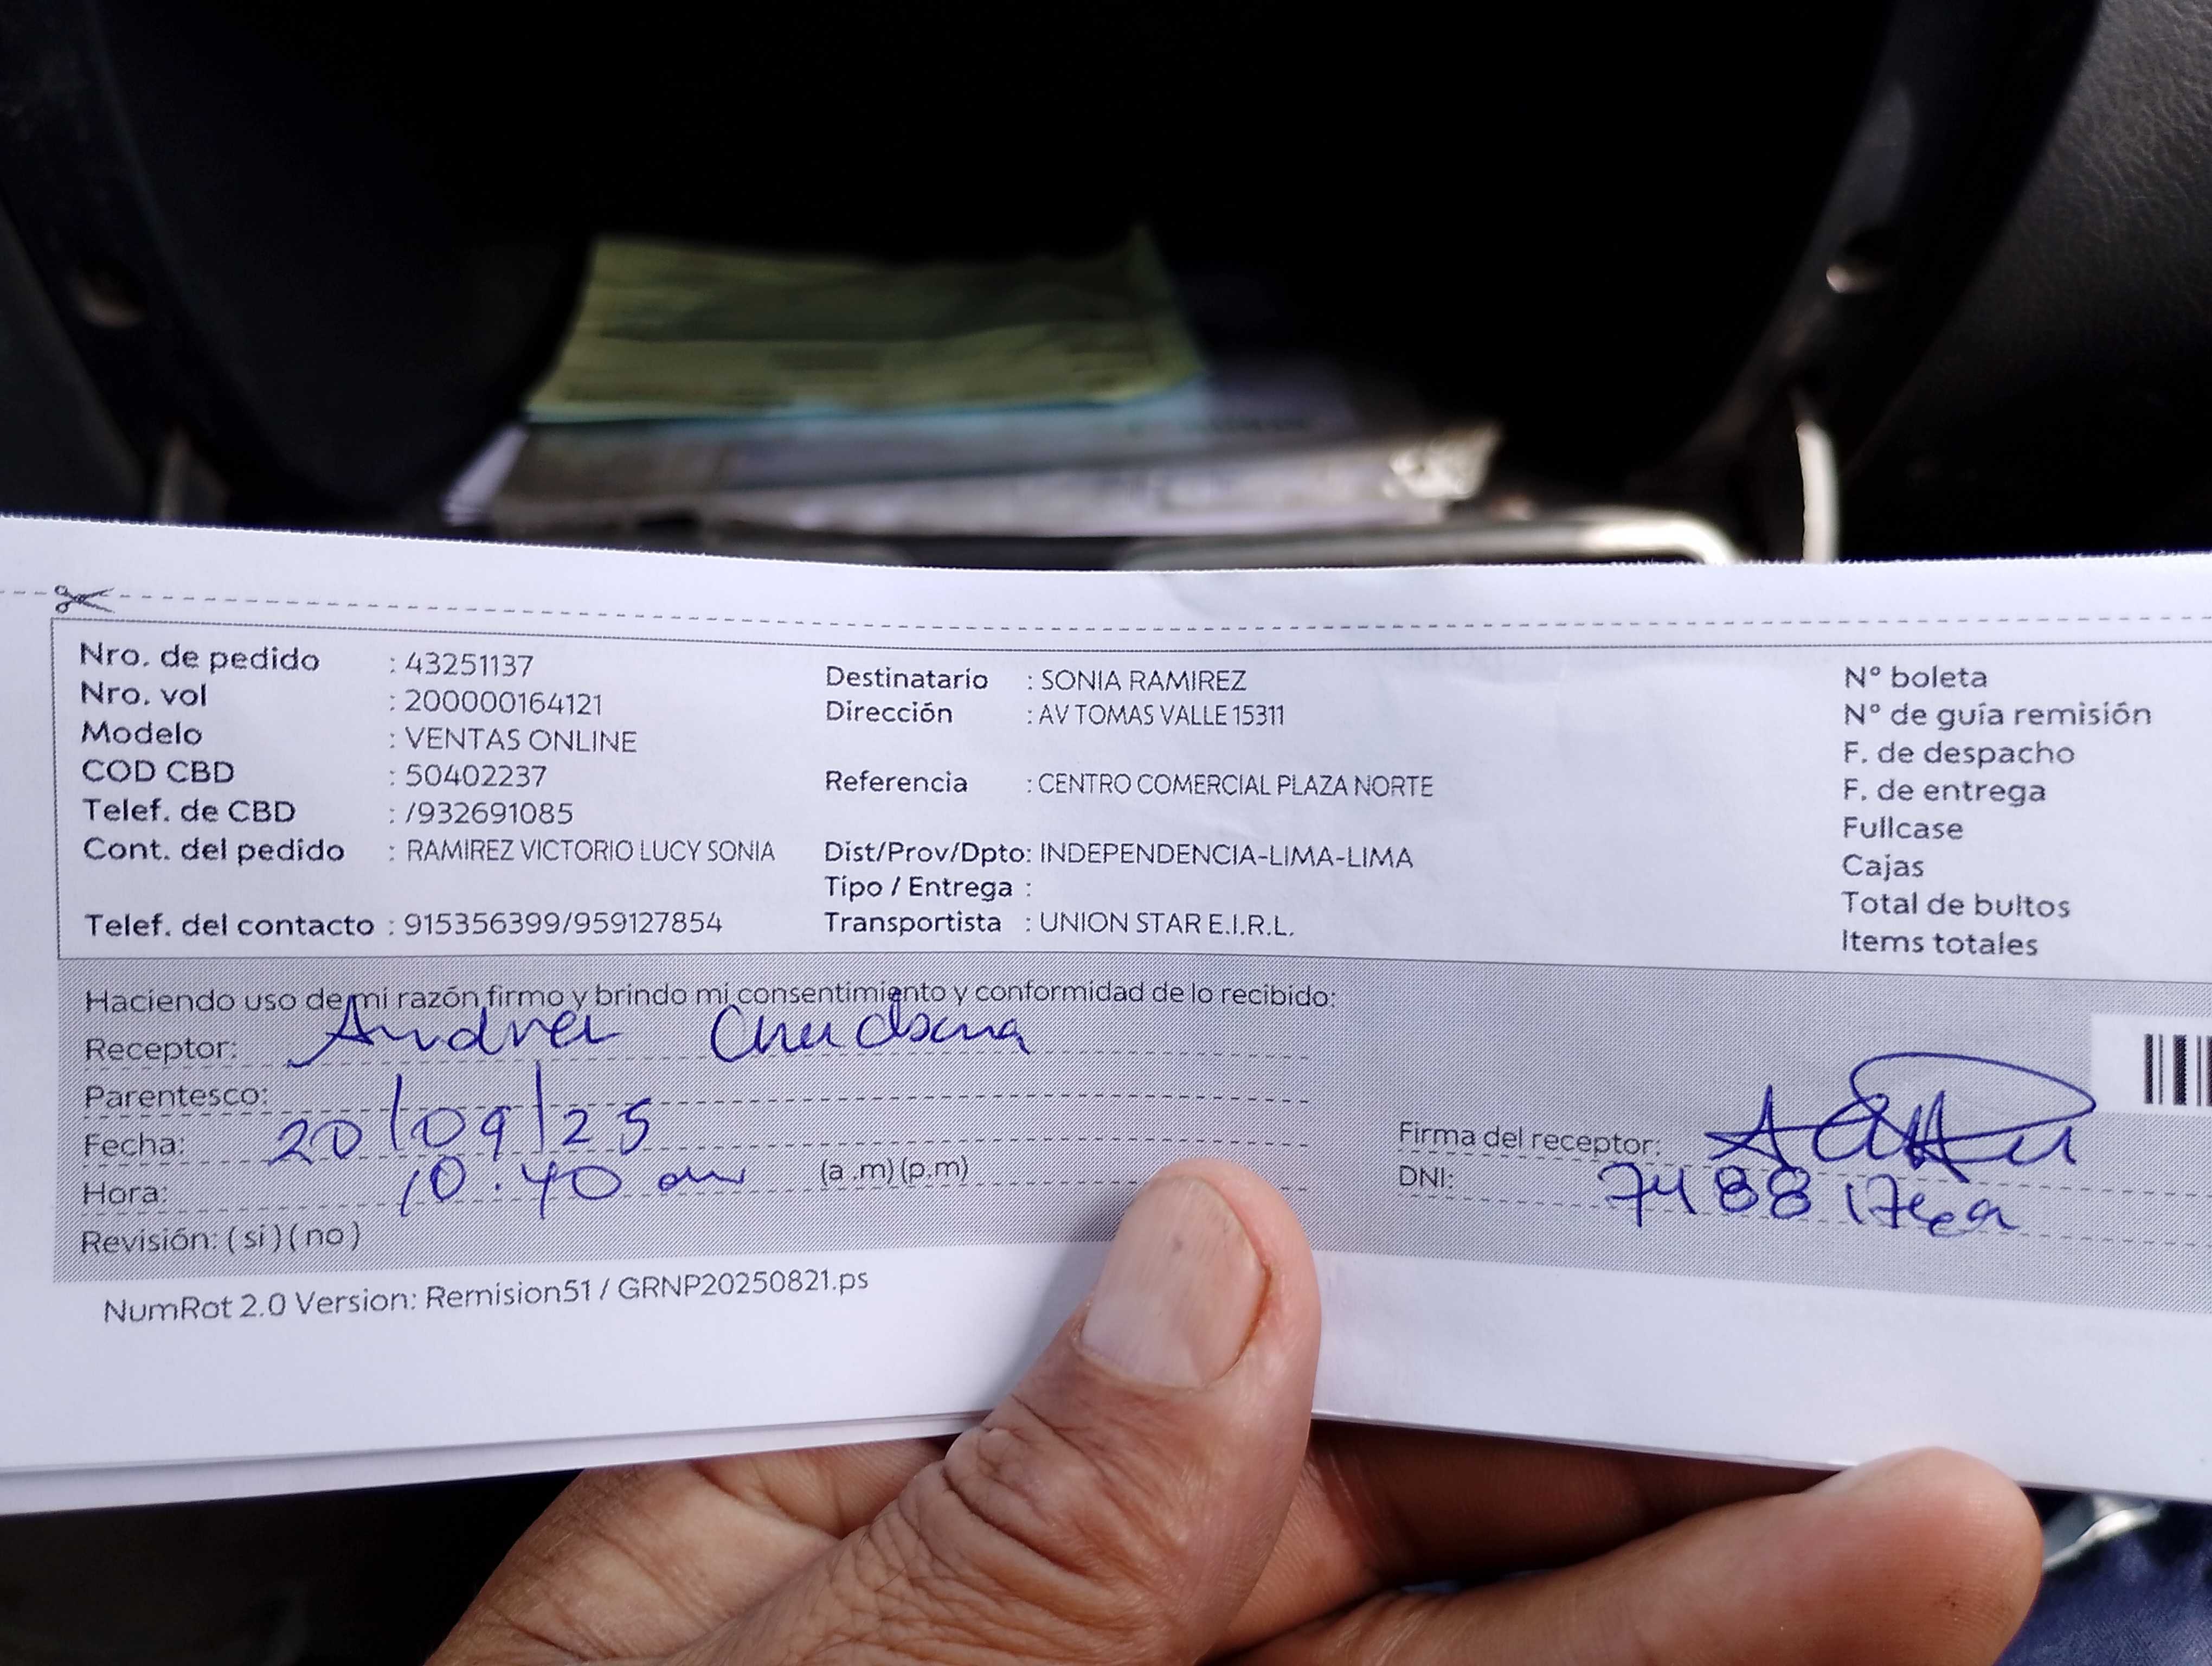 Nro. de pedido : 43251137
Nro. vol : 200000164121
Modelo : VENTAS ONLINE
COD CBD : 50402237
Telef. de CBD : /932691085
Cont. del pedido : RAMIREZ VICTORIO LUCY SONIA
Telef. del contacto : 915356399/959127854
Destinatario : SONIA RAMIREZ
Dirección : AV TOMAS VALLE 15311
Referencia : CENTRO COMERCIAL PLAZA NORTE
Dist/Prov/Dpto: INDEPENDENCIA-LIMA-LIMA
Tipo / Entrega :
Transportista : UNION STAR E.I.R.L.
N° boleta
N° de guía remisión
F. de despacho
F. de entrega
Fullcase
Cajas
Total de bultos
Items totales
Haciendo uso de mi razón firmo y brindo mi consentimiento y conformidad de lo recibido:
Receptor:
Parentesco:
Fecha: 20/09/25
Hora: 10:40 am (a.m)(p.m)
Revisión: (si)(no)
Firma del receptor:
DNI:
NumRot 2.0 Version: Remision51 / GRNP20250821.ps